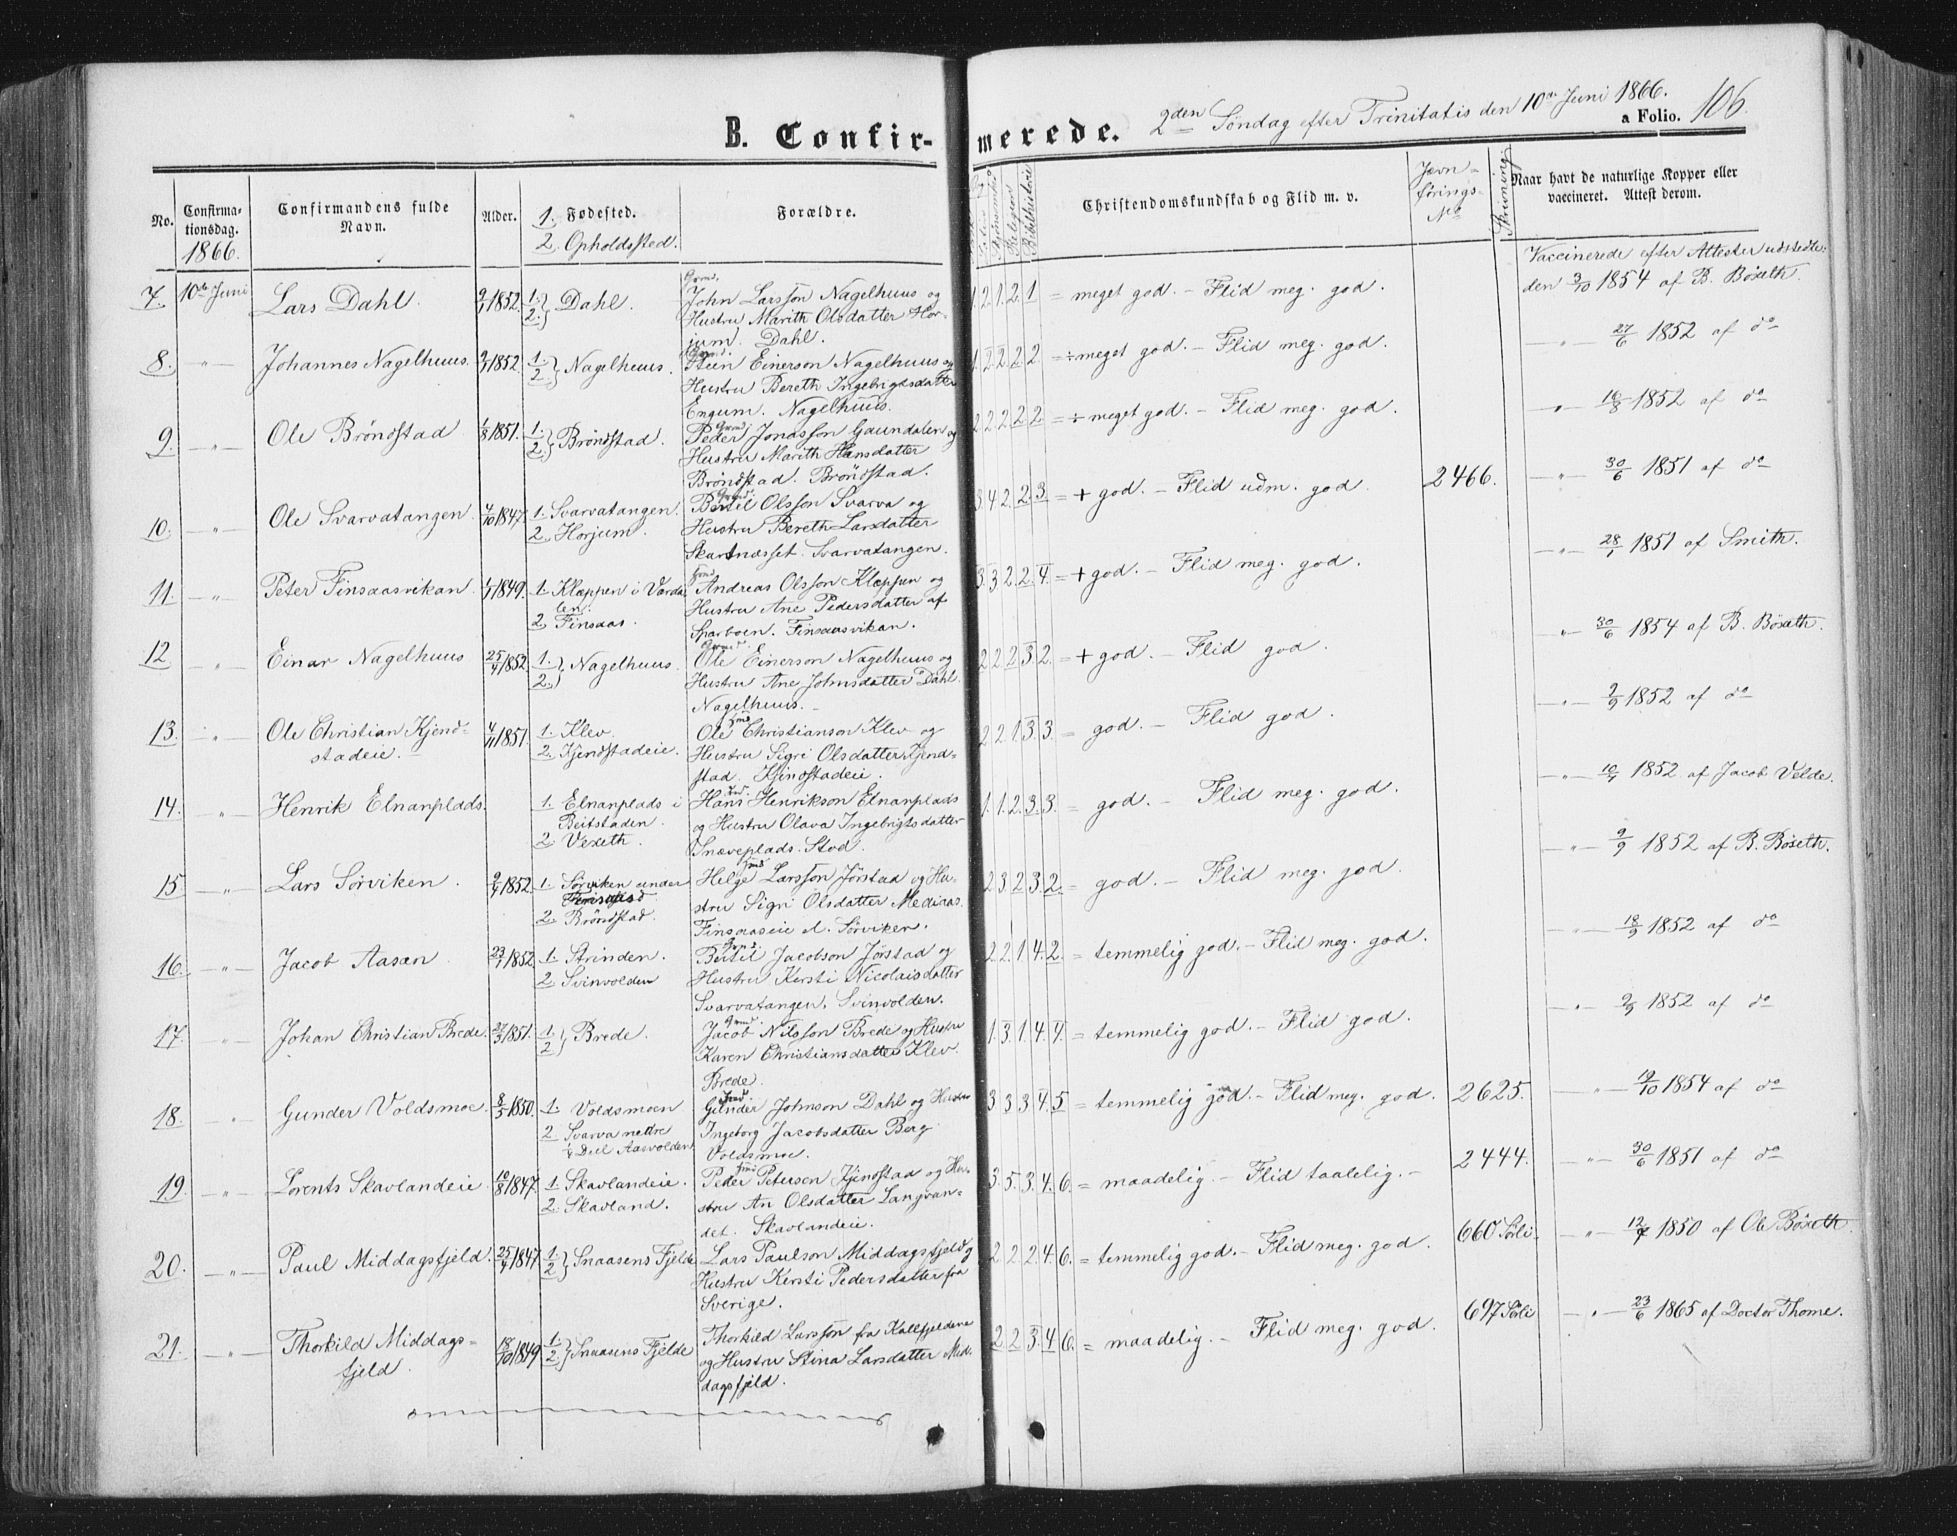 B. Confirmerede. 2den Söndag efter Trinitatis den 10de Juni 1866. a Folio. 106.
No. Confirmationsdag. 1866. Confirmandens fulde Navn. Alder. 1. Fødested. 2. Opholdssted. Forældre. Christendomskundskab og Flid m. v. Jævnførings-No Naar havt de naturlige Kopper eller vaccineret. Attest derom.
Vaccinerede efter Attester udstedte:
7. 10de Juni Lars Dahl. 1852. 1. 2. } Dahl. Gmd. John Larsson Nagelhuus og = meget god. – Flid meg. god. den 3/10 1854 af B. Böseth.
Hustru Marith Olsdatter Hor-
jum. Dahl.
8. –"– Johannes Nagelhuus. 1852. 1. 2. } Nagelhuus. Gmd. Steen Einerson Nagelhuus og 1.2.2.2.2. = ÷ meget god. – Flid meg. god. –"– 27/6 1852 af do
Hustru Bereth Ingebrigtsdatter
Engum. Nagelhuus.
9. –"– Ole Bröndstad 1/8 1851. 1. 2. } Bröndstad. Gmd. Peder Jonasson Gaundalen og 2.2.2.2.2. = ÷ meget god. – Flid meg. god. –"– 16/8 1852 af do
Hustru Marith Hansdatter
Bröndstad. Bröndstad.
10. –"– Ole Svarvatangen. 4/10 1847. 1. Svarvatangen. Gmd. Bertil Olsson Svarva og 3.4.2.2.3. = + god. – Flid udm. god. 2466. –"– 30/6 1851 af do
2. Horjum. Hustru Bereth Larsdatter
Skartnæsset. Svarvatangen.
11. –"– Peter Finsaasvikan 1849. 1. Klæppen i Værda- Andreas Olsson Klæppen og 3.3.2.2.4. = + god. – Flid meg. god. –"– 28/1 1851 af Smith.
len. Hustru Ane Pedersdatter af
2. Finsaas. Sparboen. Finsaasvikan.
12 –"– Einar Nagelhuus 25/4 1852. 1. 2. } Nagelhuus. Gmd. Ole Einerson Nagelhuus og 2.2.2.3.2. = + god. – Flid god. –"– 30/6 1854 af B. Böseth.
Hustru Ane Johnsdatter Dahl.
Nagelhuus. –
13. –"– Ole Christian Kjend- 4/11 1851. 1. Klev. Ole Christianson Klev og 2.2.1.3.3. = god. – Flid god. –"– 2/9 1852 af do
stadeie. – 2. Kjendstadeie. Hustru Sigri Olsdatter Kjend-
stad. Kjendstadeie.
14. –"– Henrik Elnanplads. 1. Elnanplads i Hans Henrikson Elnanplads 1.1.2.3.3. = god. – Flid meg. god. –"– 1852 af Jacob Velde.
Beitstaden. og Hustru Olava Ingebrigtsdatter
2. Vexeth. Snæveplads. Stod.
15 –"– Lars Sörviken. 1852. 1. Sörviken under Helge Larsson Jörstad og Hu- 2.3.2.3.2. = god. – Flid meg. god. –"– 9/9 1852 af B. Böseth.
stru Sigri Olsdatter Medjaas.
2. Bröndstad. Finsaaseie el. Sörviken.
16. –"– Jacob Aasen 23/1 1852. 1. Strinden. Gmd. Bertil Jacobson Jörstad og 2.2.1.4.2. = temmelig god. – Flid meg. god. –"– 18/9 1852 af do
2. Svinvolden Hustru Kersti Nicolaisdatter
Svarvatangen. Svinvolden.
17. –"– Johan Christian Brede. 27/3 1851. 1. 2. } Brede. Gmd. Jacob Nilsson Brede og Hustru 1.3.1.4.4. = temmelig god. – Flid god. –"– 2/9 1852 af do
Karen Christiansdatter Klev.
Brede.
18. –"– Gunder Voldsmoe. 8/5 1850. 1. Voldsmoen Gunder Johnson Dahl og Hustru 3.3.3.4.5 = temmelig god. – Flid meg. god. 2625. –"– 19/10 1854 af do
2. Svarva nettre Ingeborg Jacobsdatter Berg
Deel Aasvolden Voldsmoe.
19. –"– Lorents Skavlandeie 10/8 1847. 1. Skavlandeie. Peder Petersen Kjendstad og Hu- 3.5.3.4.6. = maadelig. – Flid taalelig. – 2444. –"– 30/6 1851 af do
2. Skavland. stru An Olsdatter Langvan-
det. Skavlandeie.
20. –"– Paul Middagsfjeld. 25/4 1847. 1. 2. } Snaasens Fjelde Lars Paulson Middagsfjeld og 2.2.2.4.6. = temmelig god. – Flid meg. god. 660 Sörli. –"– 1850 af Ole Böseth.
Hustru Kersti Pedersdatter fra
Sverige.
21. –"– Thorkild Middags- 18/10 1849 1. 2. } Snaasens Fjelde Thorkild Larsson fra Kallfjeldene 2.2.3.4.6. = maadelig. – Flid meg. god. 697 Sörli –"– 23/6 1865 af Doctor Thome.
fjeld. og Hustru Stina Larsdatter Mid-
dagsfjeld.